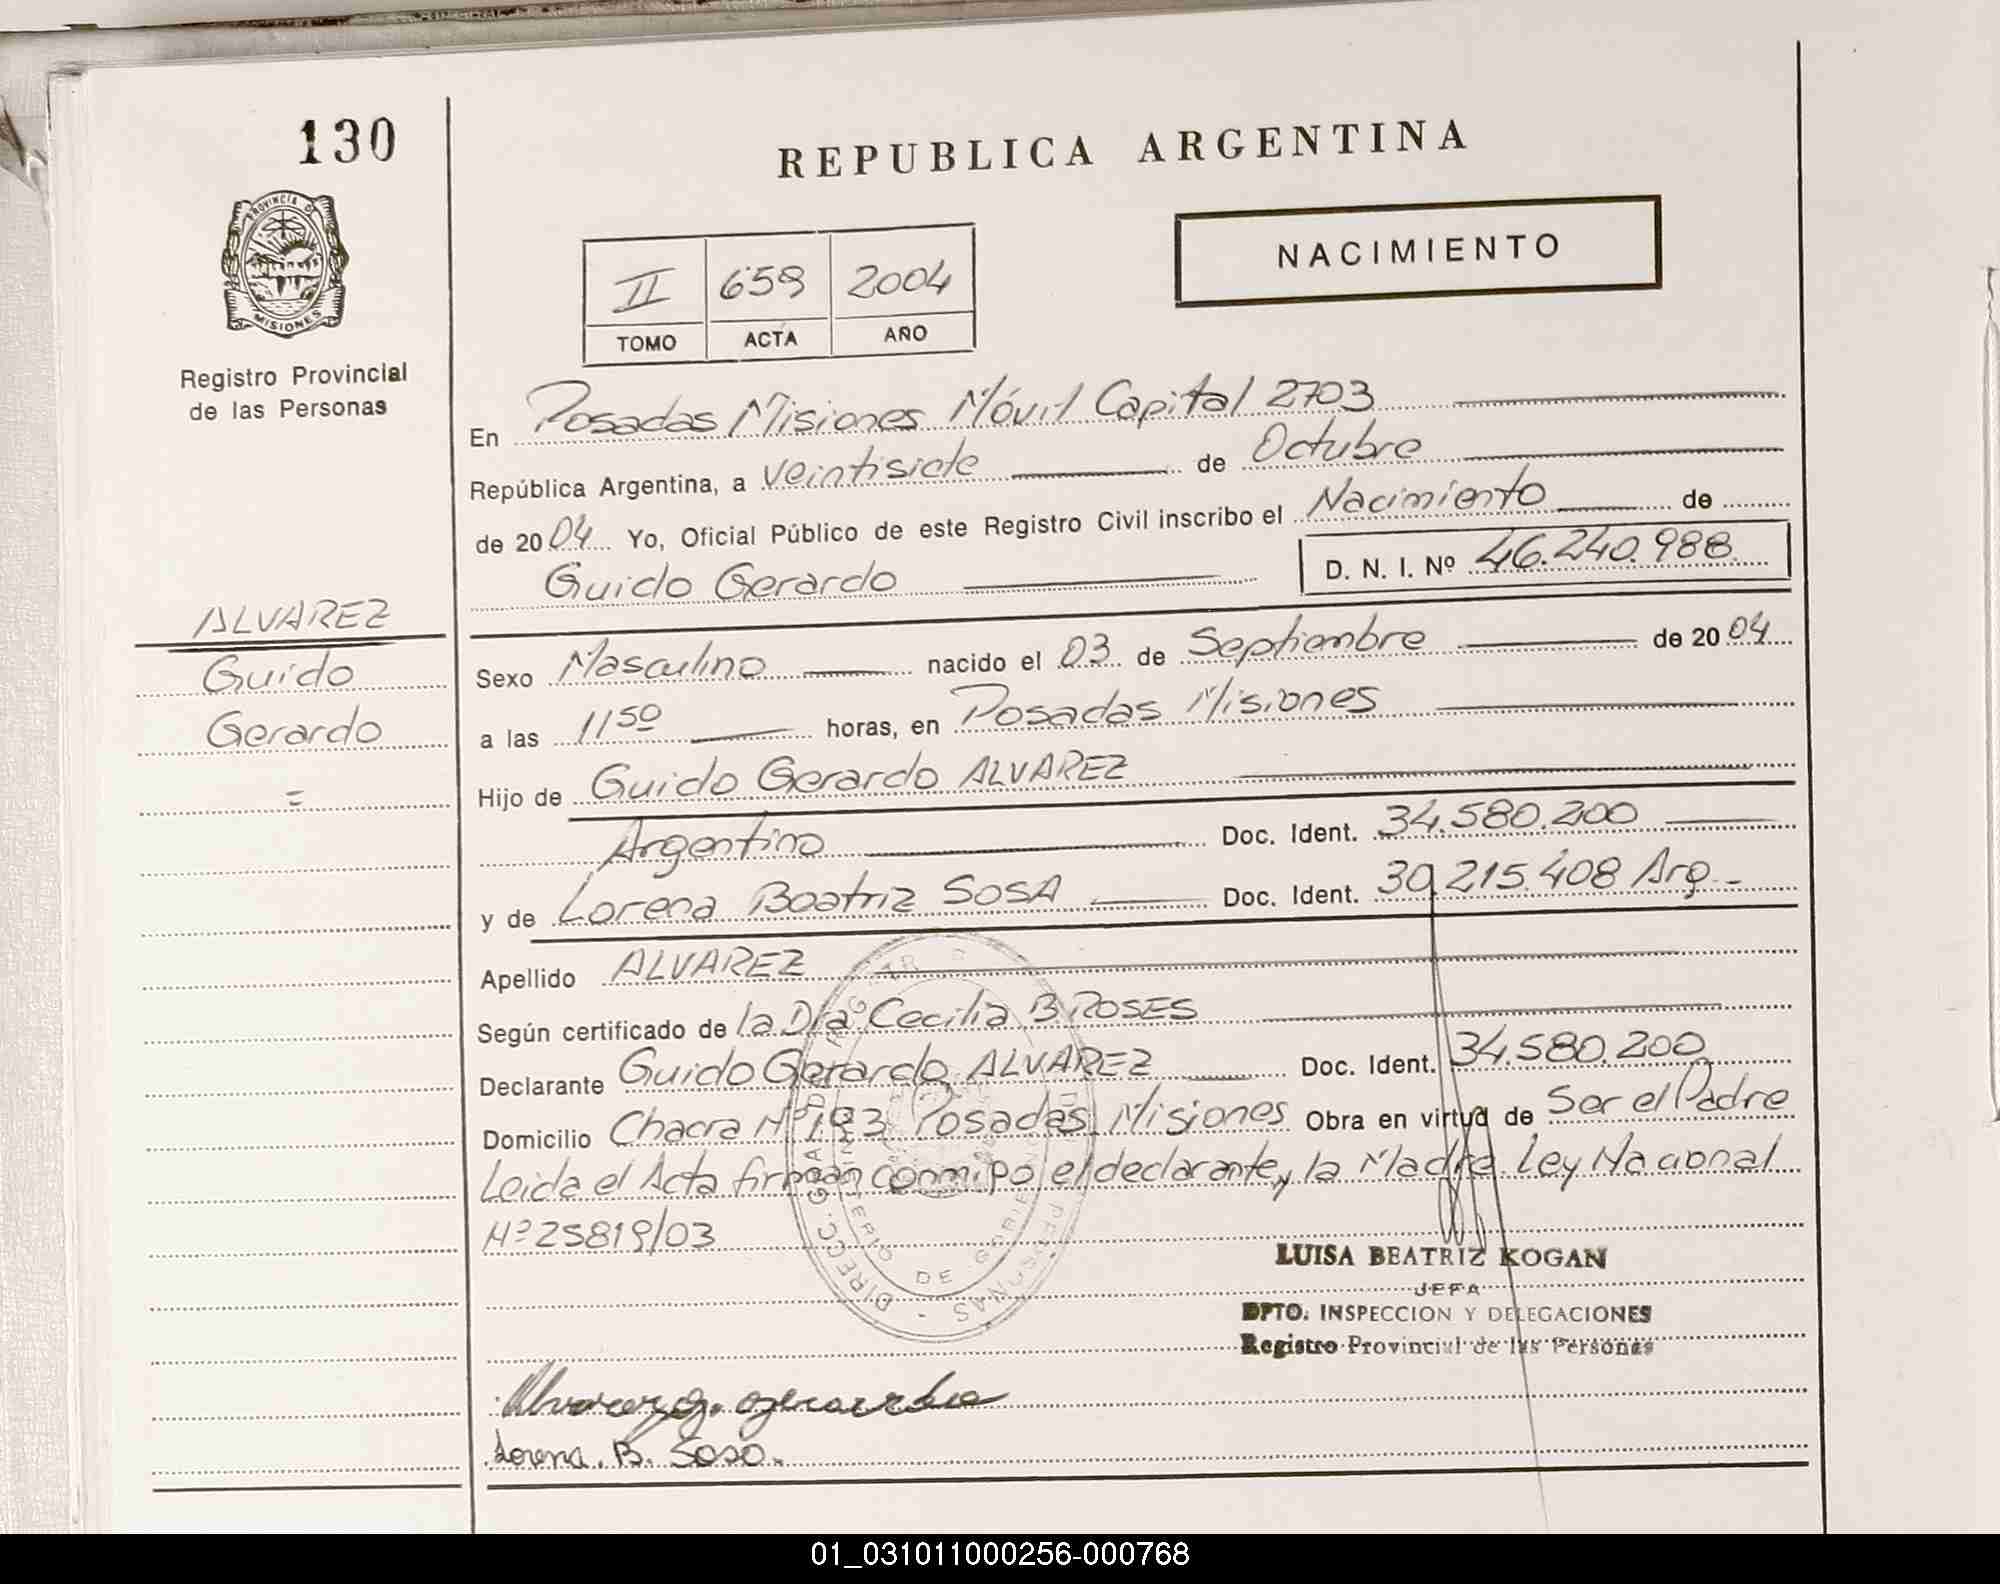 130
REPUBLICA ARGENTINA
PROVINCIA DE
MISIONES
NACIMIENTO
II 659 2004
TOMO ACTA AÑO
Registro Provincial
de las Personas
En Posadas Misiones Móvil Capital 2703
República Argentina, a veintisiete de Octubre
de 2004 Yo, Oficial Público de este Registro Civil inscribo el Nacimiento de
Guido Gerardo D. N. I. Nº 46.240.988
ALVAREZ
Guido
Gerardo
=
Sexo Masculino nacido el 03 de Septiembre de 2004
a las 11 50 horas, en Posadas Misiones
Hijo de Guido Gerardo ALVAREZ
Argentino Doc. Ident. 34.580.200
y de Lorena Beatriz SOSA Doc. Ident. 30.215.408 Arg
Apellido ALVAREZ
Según certificado de la Dra Cecilia B ROSES
Declarante Guido Gerardo ALVAREZ Doc. Ident. 34.580.200
Domicilio Chacra Nº 193 Posadas Misiones Obra en virtud de Ser el Padre
Leida el Acta firman conmigo el declarante y la Madre. Ley Nacional
Nº 25819/03
DIRECC. GRAL. PERSONAS
MINISTERIO DE GOBIERNO
LUISA BEATRIZ KOGAN
JEFA
DPTO. INSPECCION Y DELEGACIONES
Registro Provincial de las Personas
Alvarez g. gerardo
Lorena. B. Soso.
01_031011000256-000768